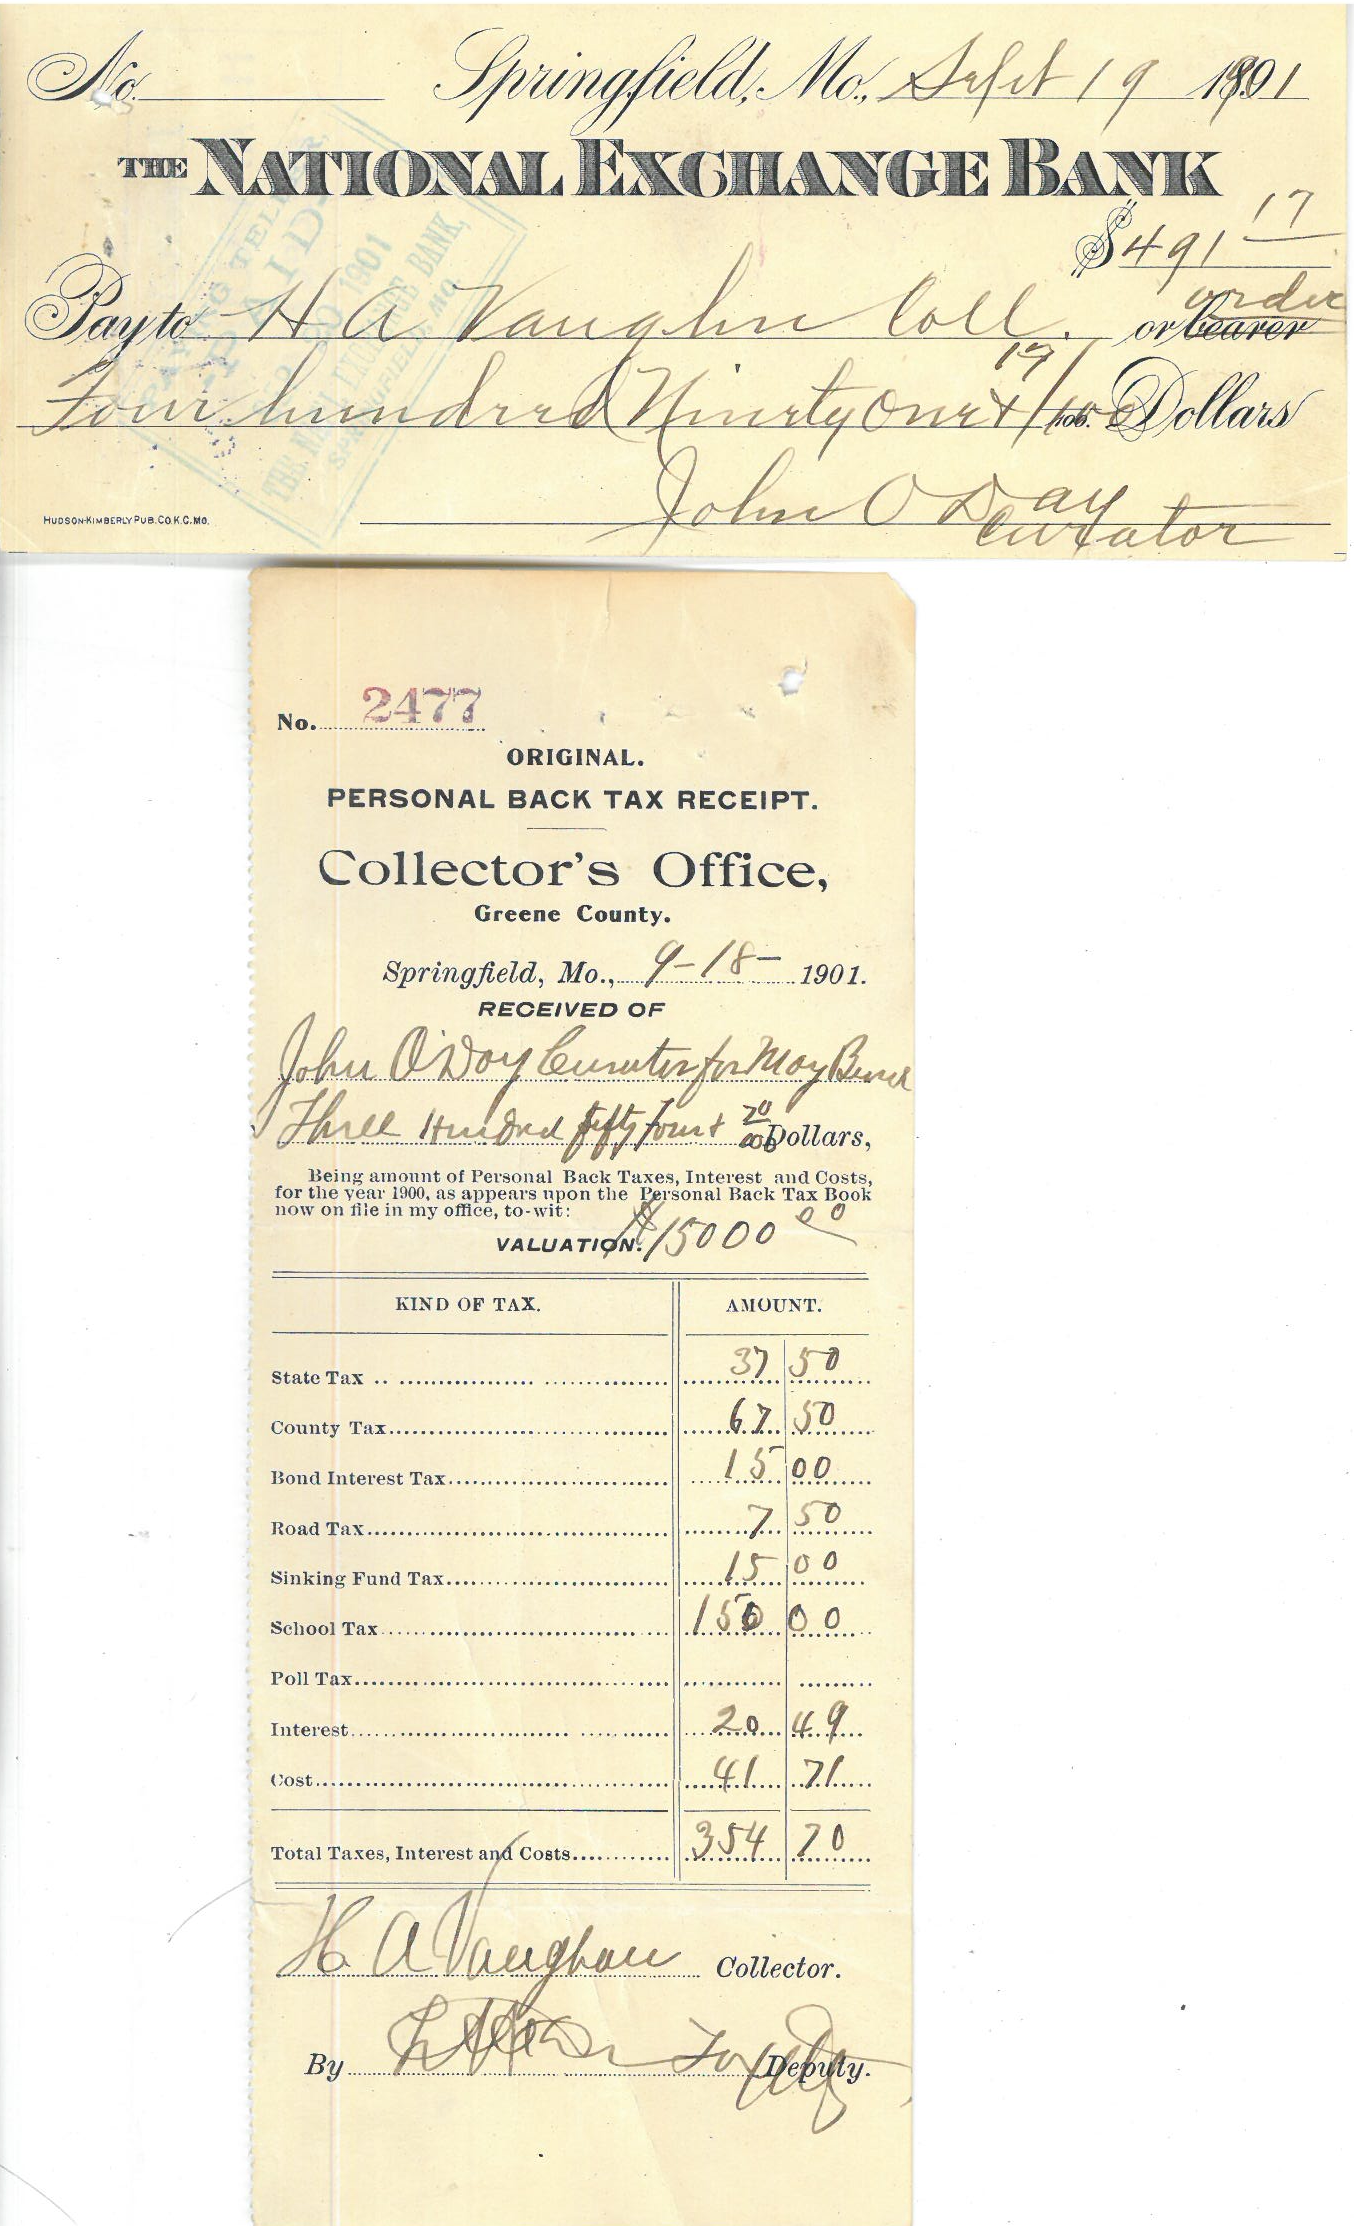 No. Springfield, Mo., Sept 19 1901
THE NATIONAL EXCHANGE BANK
$491 17
Pay to H A Vaughn Coll. or bearer order
Four hundred Ninety One & 17/100 Dollars
John O Day
Curator
HUDSON-KIMBERLY PUB. CO. K.C. MO.
PAYING TELLER,
PAID
30 1901
THE NAT'L EXCHANGE BANK,
SPRINGFIELD, MO.
No. 2477
ORIGINAL.
PERSONAL BACK TAX RECEIPT.
Collector's Office,
Greene County.
Springfield, Mo., 9-18- 1901.
RECEIVED OF
John O'Day Curator for May
Three Hundred fifty four & 70/100 Dollars,
Being amount of Personal Back Taxes, Interest and Costs,
for the year 1900, as appears upon the Personal Back Tax Book
now on file in my office, to-wit:
VALUATION. $15000 00
KIND OF TAX. AMOUNT.
State Tax 37 50
County Tax 67 50
Bond Interest Tax 15 00
Road Tax 7 50
Sinking Fund Tax 15 00
School Tax 150 00
Poll Tax
Interest 20 49
Cost 41 71
Total Taxes, Interest and Costs 354 70
H A Vaughan Collector.
By Deputy.